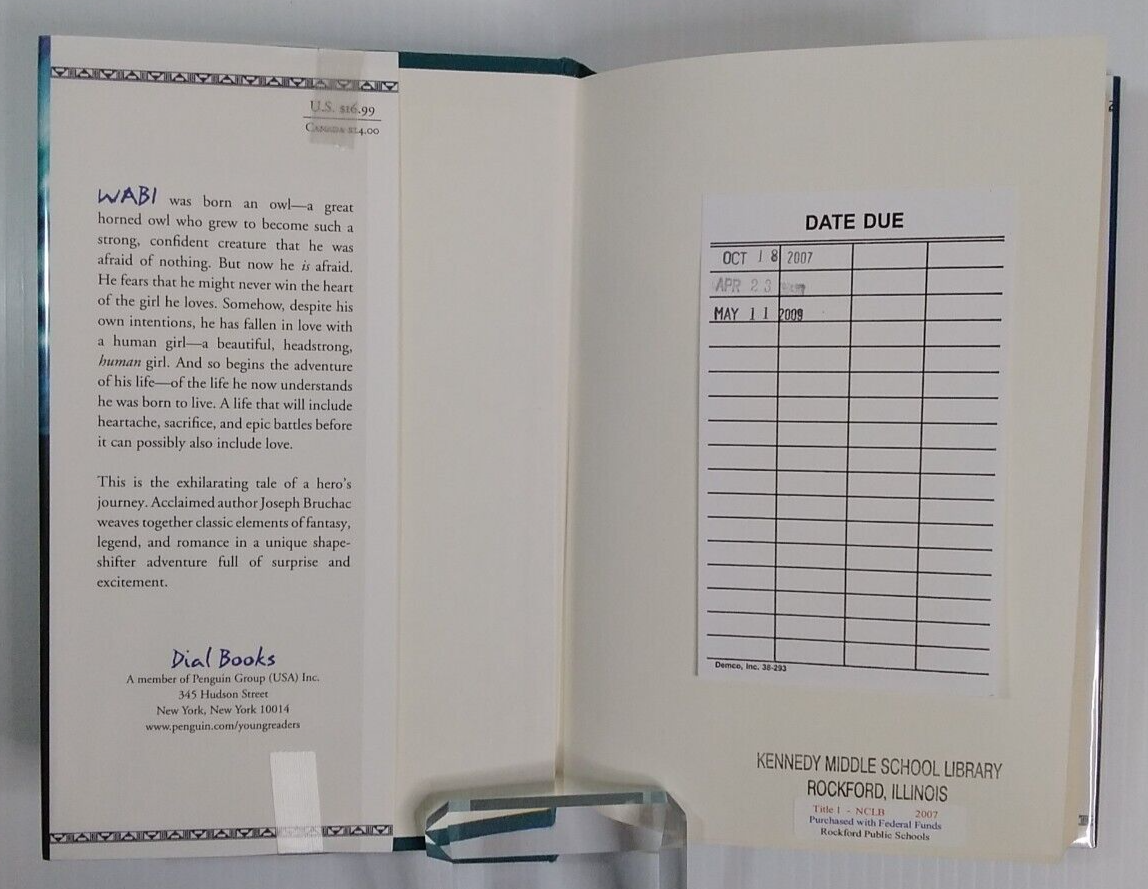 U.S. $16.99
CANADA $24.00
WABI was born an owl—a great
horned owl who grew to become such a
strong, confident creature that he was
afraid of nothing. But now he is afraid.
He fears that he might never win the heart
of the girl he loves. Somehow, despite his
own intentions, he has fallen in love with
a human girl—a beautiful, headstrong,
human girl. And so begins the adventure
of his life—of the life he now understands
he was born to live. A life that will include
heartache, sacrifice, and epic battles before
it can possibly also include love.
This is the exhilarating tale of a hero's
journey. Acclaimed author Joseph Bruchac
weaves together classic elements of fantasy,
legend, and romance in a unique shape-
shifter adventure full of surprise and
excitement.
Dial Books
A member of Penguin Group (USA) Inc.
345 Hudson Street
New York, New York 10014
www.penguin.com/youngreaders
DATE DUE
OCT 18 2007
APR 23
MAY 11 2009
Demco, Inc. 38-293
KENNEDY MIDDLE SCHOOL LIBRARY
ROCKFORD, ILLINOIS
Title I - NCLB 2007
Purchased with Federal Funds
Rockford Public Schools